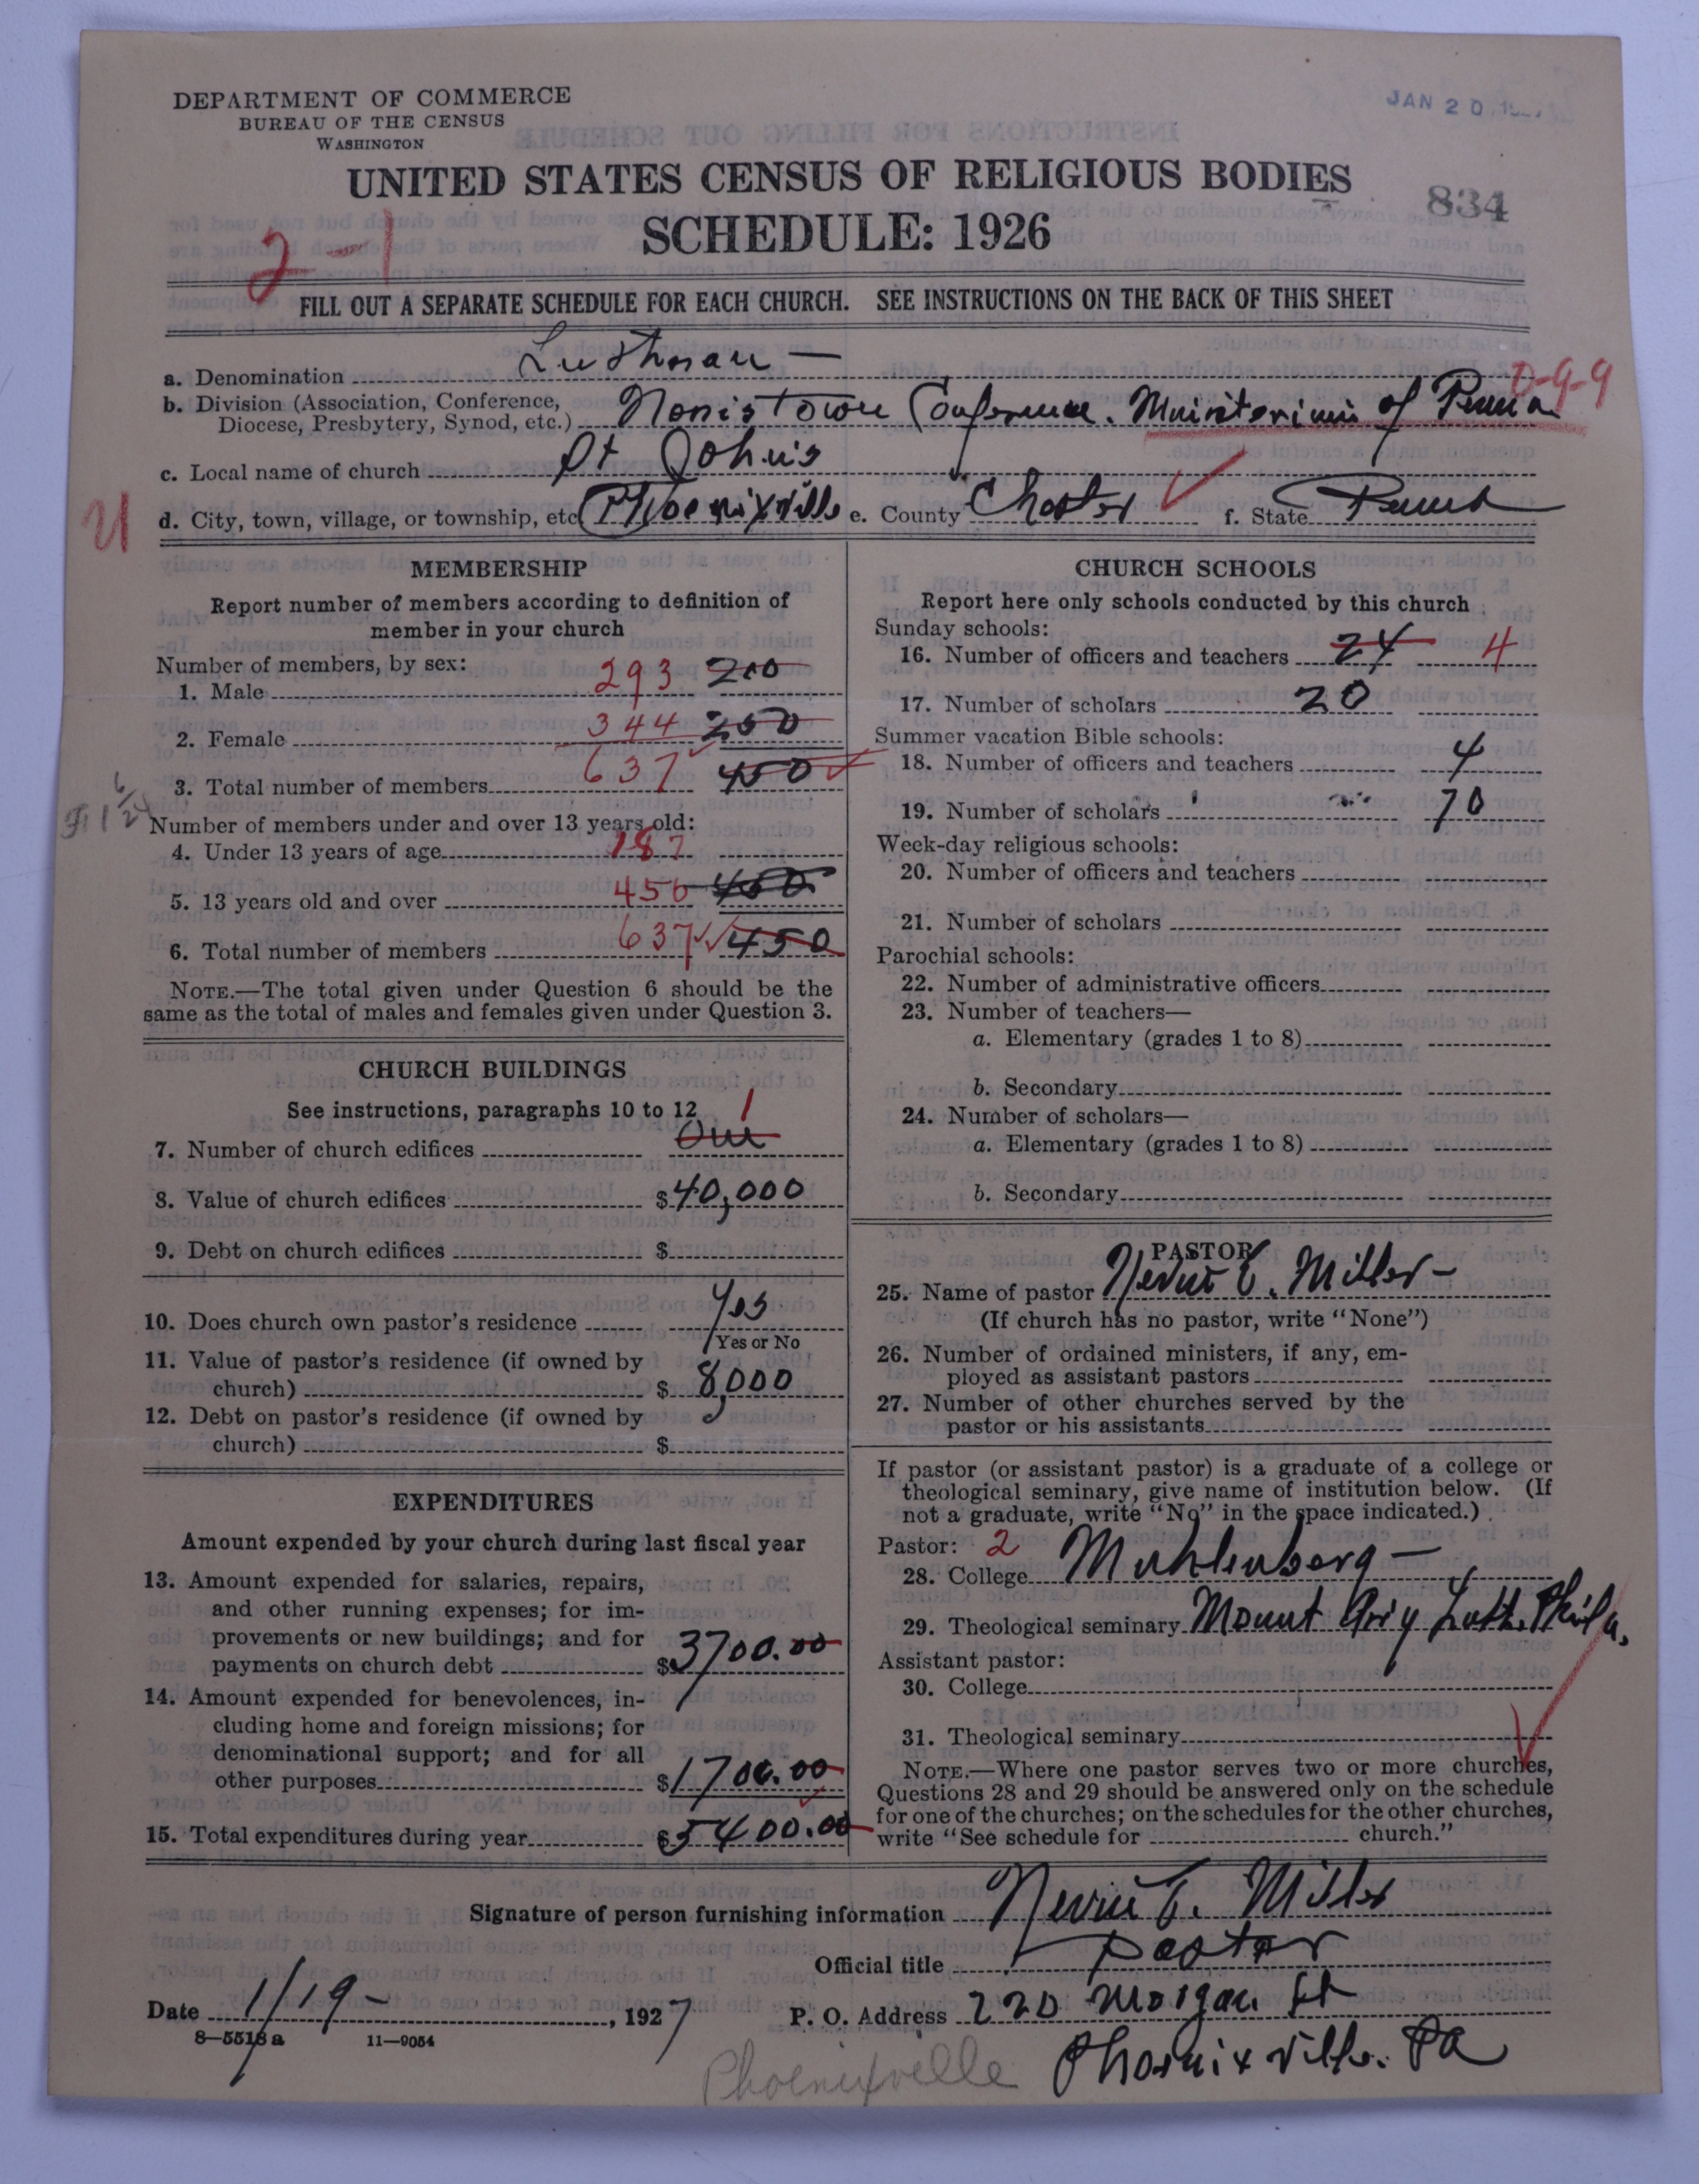 DEPARTMENT OF COMMERCE
BUREAU OF THE CENSUS
WASHINGTON
JAN 20
UNITED STATES CENSUS OF RELIGIOUS BODIES
834
SCHEDULE: 1926
2-1
FILL OUT A SEPARATE SCHEDULE FOR EACH CHURCH. SEE INSTRUCTIONS ON THE BACK OF THIS SHEET
a. Denomination Lutheran —
0-9-9
b. Division (Association, Conference,
Diocese, Presbytery, Synod, etc.) Norristown Conference. Ministerium of Penna
c. Local name of church St John's
d. City, town, village, or township, etc Phoenixville e. County Chester f. State Penna
MEMBERSHIP
Report number of members according to definition of
member in your church
Number of members, by sex:
1. Male 293 200
2. Female 344 250
3. Total number of members 637 450
Number of members under and over 13 years old:
4. Under 13 years of age 187
5. 13 years old and over 450 450
6. Total number of members 637 450
NOTE.—The total given under Question 6 should be the
same as the total of males and females given under Question 3.
CHURCH BUILDINGS
See instructions, paragraphs 10 to 12
1
7. Number of church edifices One
8. Value of church edifices $40,000
9. Debt on church edifices $
10. Does church own pastor's residence Yes
Yes or No
11. Value of pastor's residence (if owned by
church) $ 8,000
12. Debt on pastor's residence (if owned by
church) $
EXPENDITURES
Amount expended by your church during last fiscal year
13. Amount expended for salaries, repairs,
and other running expenses; for im-
provements or new buildings; and for
payments on church debt $3700.00
14. Amount expended for benevolences, in-
cluding home and foreign missions; for
denominational support; and for all
other purposes $1700.00
15. Total expenditures during year $5400.00
CHURCH SCHOOLS
Report here only schools conducted by this church
Sunday schools:
16. Number of officers and teachers 24 4
17. Number of scholars 20
Summer vacation Bible schools:
18. Number of officers and teachers 4
19. Number of scholars 70
Week-day religious schools:
20. Number of officers and teachers
21. Number of scholars
Parochial schools:
22. Number of administrative officers
23. Number of teachers—
a. Elementary (grades 1 to 8)
b. Secondary
24. Number of scholars—
a. Elementary (grades 1 to 8)
b. Secondary
PASTOR
25. Name of pastor Nevin E. Miller —
(If church has no pastor, write "None")
26. Number of ordained ministers, if any, em-
ployed as assistant pastors
27. Number of other churches served by the
pastor or his assistants
If pastor (or assistant pastor) is a graduate of a college or
theological seminary, give name of institution below. (If
not a graduate, write "No" in the space indicated.)
Pastor: 2
28. College Muhlenberg —
29. Theological seminary Mount Airy Luth. Phila.
Assistant pastor:
30. College
31. Theological seminary
NOTE.—Where one pastor serves two or more churches,
Questions 28 and 29 should be answered only on the schedule
for one of the churches; on the schedules for the other churches,
write "See schedule for church."
Signature of person furnishing information Nevin E. Miller
Official title pastor
Date 1/19 - , 1927 P. O. Address 220 Morgan St
8—5518 a 11—9054
Phoenixville Phoenixville. Pa